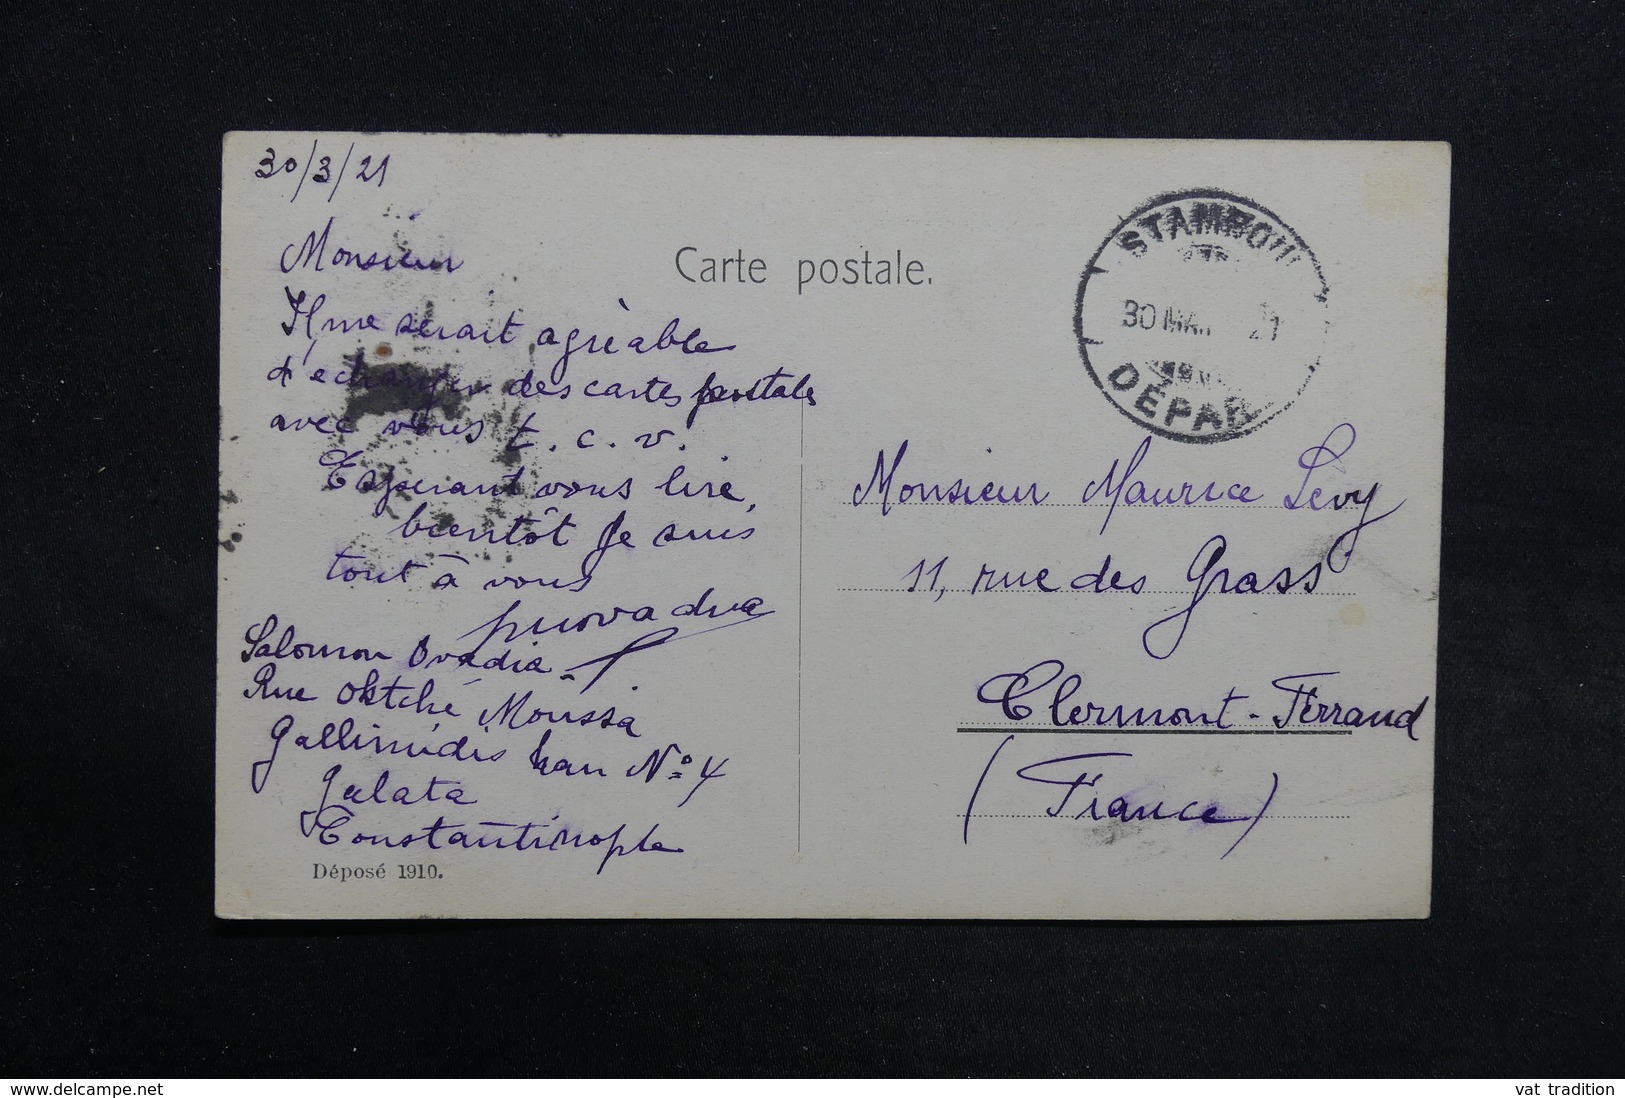 30/3/21
Monsieur
Il me serait agréable
d'échanger des cartes postales
avec vous t. c. v.
Esperant vous lire,
bientôt je suis
tout à vous
Salomon Ovadia
Rue Oktché Moussa
Gallimidis han Nº 4
Galata
Constantinople
Déposé 1910.
Carte postale.
STAMBOUL
30 MAR 21
DÉPAR
Monsieur Maurice Levy
11, rue des Grass
Clermont-Ferrand
(France)
www.delcampe.net
vat tradition